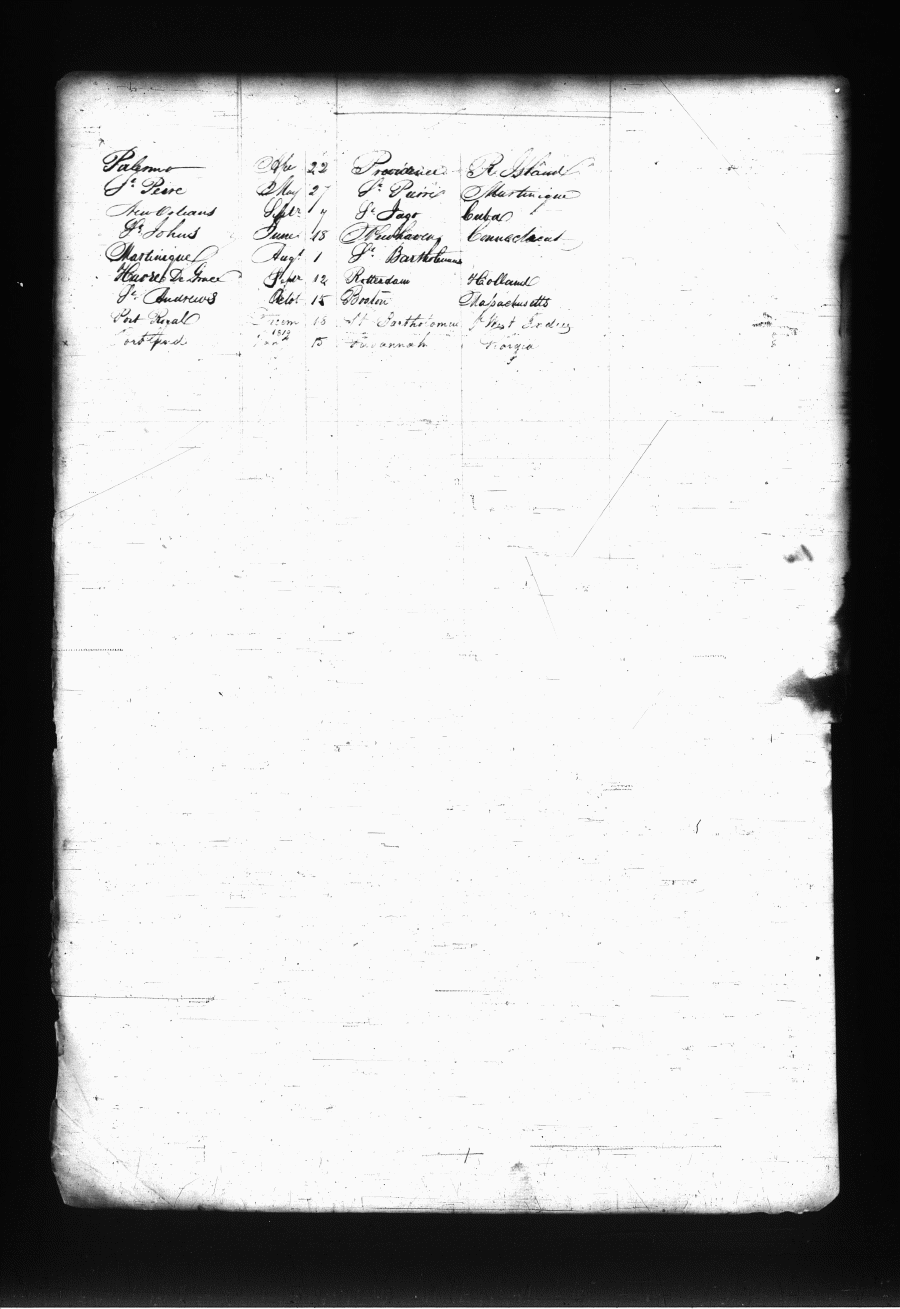 Palermo Apr 22 Providence R Island
St Peire May 27 St Peirre Martinique
New Orleans Septr 7 St Jago Cuba
St Johns June 18 New Haven Connecticut
Martinique Augt 1 St Bartholomus
Havre De Grace Septr 12 Rotterdam Holland
St Andrews Octot 15 Boston Massachusetts
Port Royal 18 St Bartholomu West Indies
1819
15 Savannah Georgia